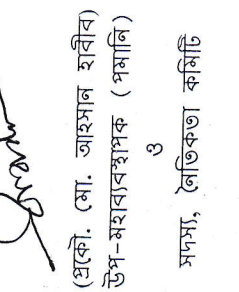 (প্রকৌ. মো. আহসান হাবীব)
উপ-মহাব্যবস্থাপক (পমানি)
ও
সদস্য, নৈতিকতা কমিটি